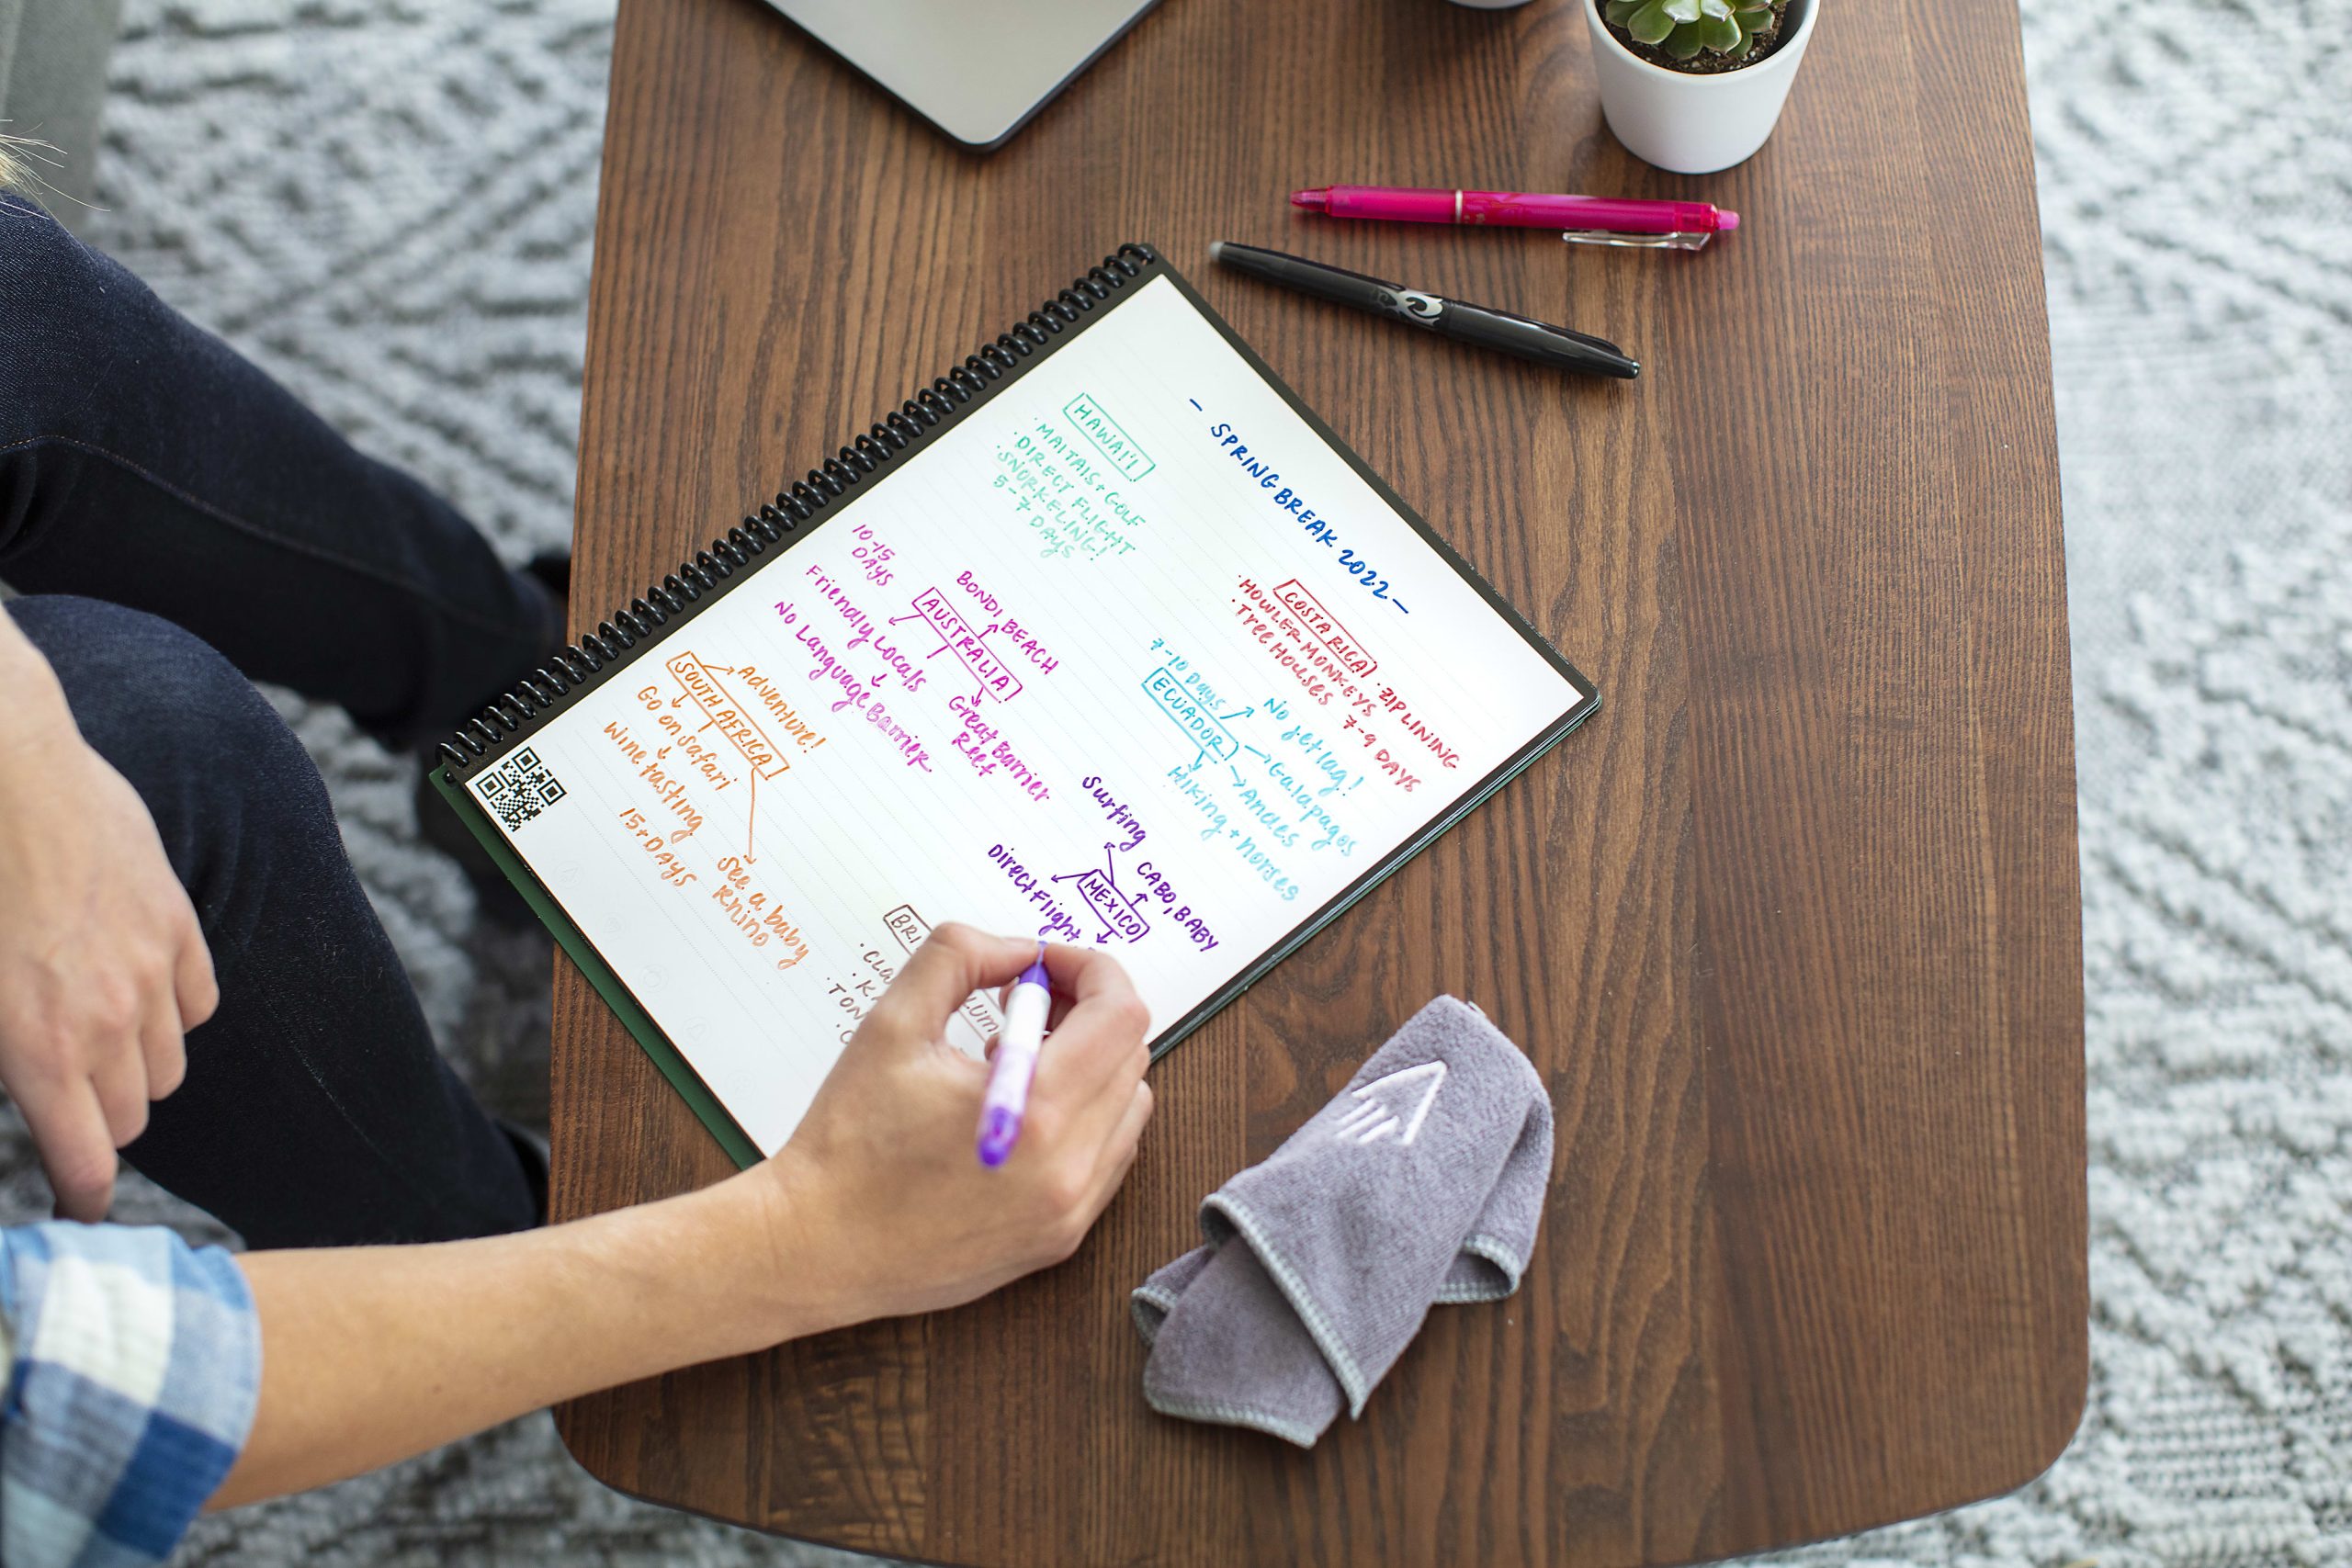 - SPRING BREAK 2022 -
HAWAI'I
· MAITAIS + GOLF
· DIRECT FLIGHT
· SNORKELING!
5-7 DAYS
COSTA RICA
· HOWLER MONKEYS
· ZIPLINING
· TREE HOUSES
7-9 DAYS
BONDI BEACH
10-15
DAYS
AUSTRALIA
Friendly Locals
No Language Barrier
Great Barrier
Reef
7-10 Days
ECUADOR
No jet lag!
Galapagos
Andes
Hiking + Horses
SOUTH AFRICA
Adventure!
Go on safari
Wine tasting
15+ DAYS
See a baby
Rhino
Surfing
Direct Flight
MEXICO
CABO, BABY